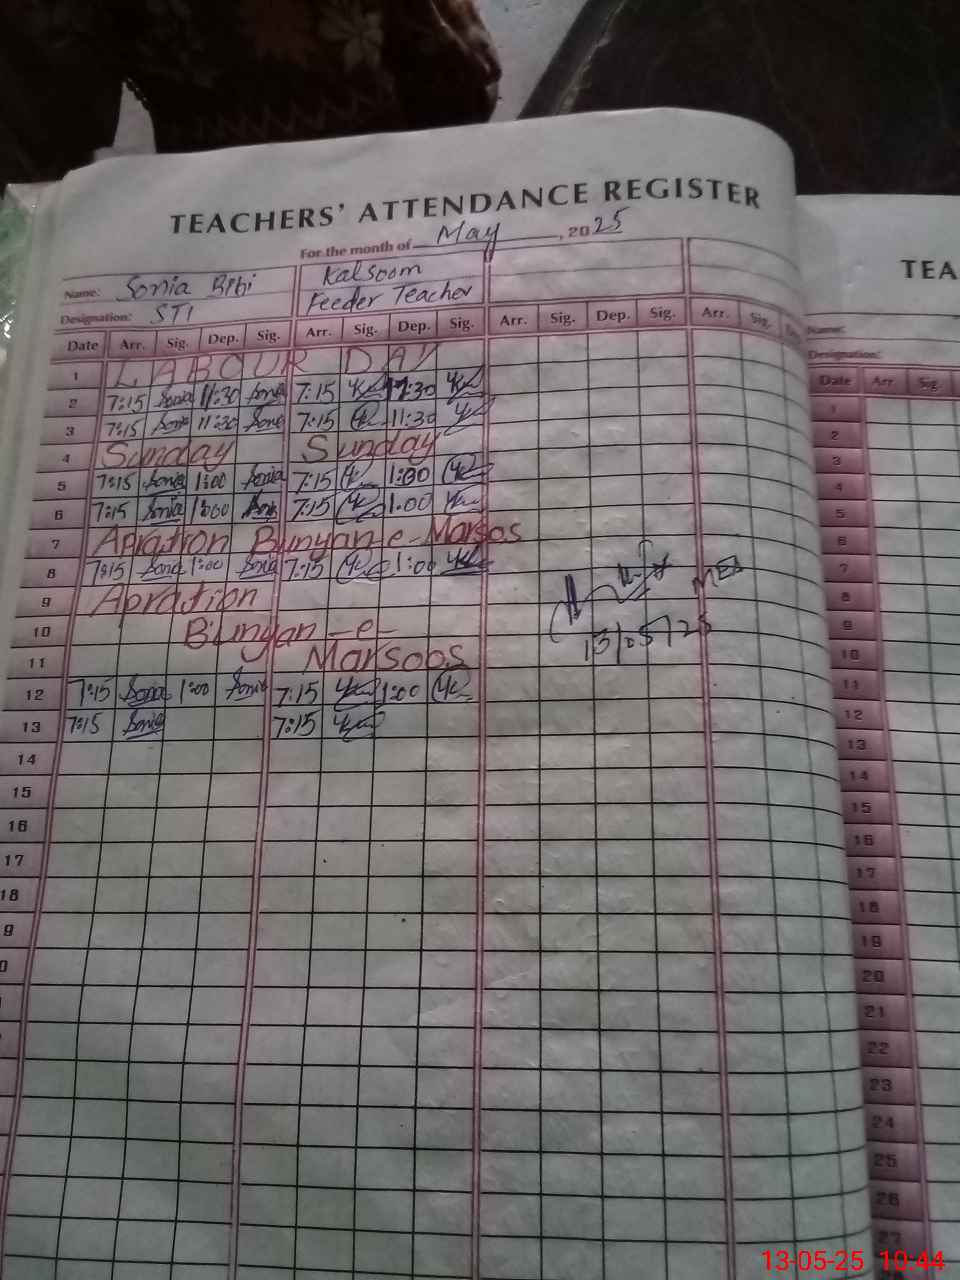 TEACHERS' ATTENDANCE REGISTER
For the month of May, 2025
Name: Sonia Bibi Kalsoom
Designation: STI Feeder Teacher
Date Arr. Sig. Dep. Sig. Arr. Sig. Dep. Sig. Arr. Sig. Dep. Sig. Arr. Sig.
1 LABOUR DAY
2 7:15 Sonia 11:30 Sonia 7:15 11:30
3 7:15 Sonia 11:30 Sonia 7:15 11:30
4 Sunday Sunday
5 7:15 Sonia 1:00 Sonia 7:15 1:00
6 7:15 Sonia 1:00 Sonia 7:15 1:00
7 Apration Bunyan-e-Marsos
8 7:15 Sonia 1:00 Sonia 7:15 1:00
9 Apration
10 Bunyan-e-
11 Marsoos
12 7:15 Sonia 1:00 Sonia 7:15 1:00
13 7:15 Sonia 7:15
MEA
13/05/25
14
15
16
17
18
9
0
TEA
Name:
Designation:
Date Arr. Sig.
1
2
3
4
5
6
7
8
9
10
11
12
13
14
15
16
17
18
19
20
21
22
23
24
25
26
27
13-05-25 10:44